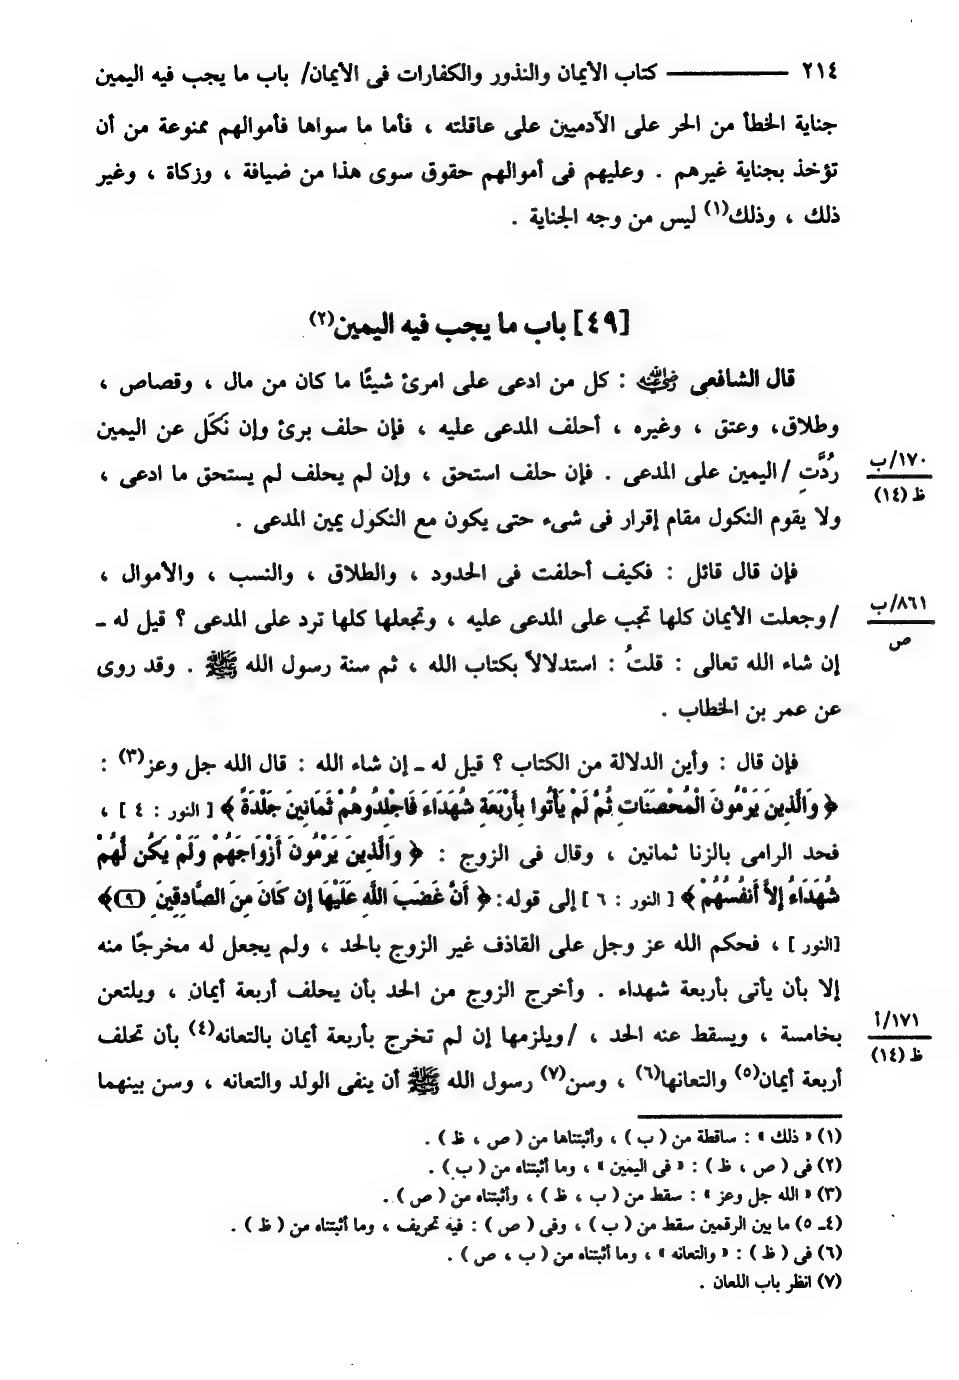 ٢١٤ ــــــــــ كتاب الأيمان والنذور والكفارات فى الأيمان/ باب ما يجب فيه اليمين
جناية الخطأ من الحر على الآدميين على عاقلته ، فأما ما سواها فأموالهم ممنوعة من أن
تؤخذ بجناية غيرهم . وعليهم فى أموالهم حقوق سوى هذا من ضيافة ، وزكاة ، وغير
ذلك ، وذلك(١) ليس من وجه الجناية .
[٤٩] باب ما يجب فيه اليمين(٢)
قال الشافعى رضي الله عنه : كل من ادعى على امرئ شيئًا ما كان من مال ، وقصاص ،
وطلاق، وعتق ، وغيره ، أحلف المدعى عليه ، فإن حلف برئ وإن نَكَل عن اليمين
رُدَّتِ /اليمين على المدعى . فإن حلف استحق ، وإن لم يحلف لم يستحق ما ادعى ،
١٧٠/ب
ظ (١٤)
ولا يقوم النكول مقام إقرار فى شىء حتى يكون مع النكول يمين المدعى .
فإن قال قائل : فكيف أحلفت فى الحدود ، والطلاق ، والنسب ، والأموال ،
/وجعلت الأيمان كلها تجب على المدعى عليه ، وتجعلها كلها ترد على المدعى ؟ قيل له ـ
٨٦١/ب
ص
إن شاء الله تعالى : قلتُ : استدلالاً بكتاب الله ، ثم سنة رسول الله ﷺ . وقد روى
عن عمر بن الخطاب .
فإن قال : وأين الدلالة من الكتاب ؟ قيل له ـ إن شاء الله : قال الله جل وعز(٣) :
﴿ وَالَّذِينَ يَرْمُونَ الْمُحْصَنَاتِ ثُمَّ لَمْ يَأْتُوا بِأَرْبَعَةِ شُهَدَاءَ فَاجْلِدُوهُمْ ثَمَانِينَ جَلْدَةً ﴾ [ النور : ٤ ] ،
فحد الرامى بالزنا ثمانين ، وقال فى الزوج : ﴿ وَالَّذِينَ يَرْمُونَ أَزْوَاجَهُمْ وَلَمْ يَكُن لَّهُمْ
شُهَدَاءُ إِلاَّ أَنفُسُهُمْ ﴾ [ النور : ٦ ] إلى قوله: ﴿ أَنَّ غَضَبَ اللَّهِ عَلَيْهَا إِن كَانَ مِنَ الصَّادِقِينَ (٩)﴾
[النور ] ، فحكم الله عز وجل على القاذف غير الزوج بالحد ، ولم يجعل له مخرجًا منه
إلا بأن يأتى بأربعة شهداء . وأخرج الزوج من الحد بأن يحلف أربعة أيمان ، ويلتعن
بخامسة ، ويسقط عنه الحد ، /ويلزمها إن لم تخرج بأربعة أيمان بالتعانه(٤) بأن تحلف
١٧١/أ
ظ (١٤)
أربعة أيمان(٥) والتعانها(٦) ، وسن(٧) رسول الله ﷺ أن ينفى الولد والتعانه ، وسن بينهما
(١) « ذلك » : ساقطة من ( ب ) ، وأثبتناها من ( ص ، ظ ) .
(٢) فى ( ص ، ظ ) : « فى اليمين » ، وما أثبتناه من ( ب ) .
(٣) « الله جل وعز » : سقط من ( ب ، ظ ) ، وأثبتناه من ( ص ) .
(٤ـ ٥) ما بين الرقمين سقط من ( ب ) ، وفى ( ص ) : فيه تحريف ، وما أثبتناه من ( ظ ) .
(٦) فى ( ظ ) : « والتعانه » ، وما أثبتناه من ( ب ، ص ) .
(٧) انظر باب اللعان .